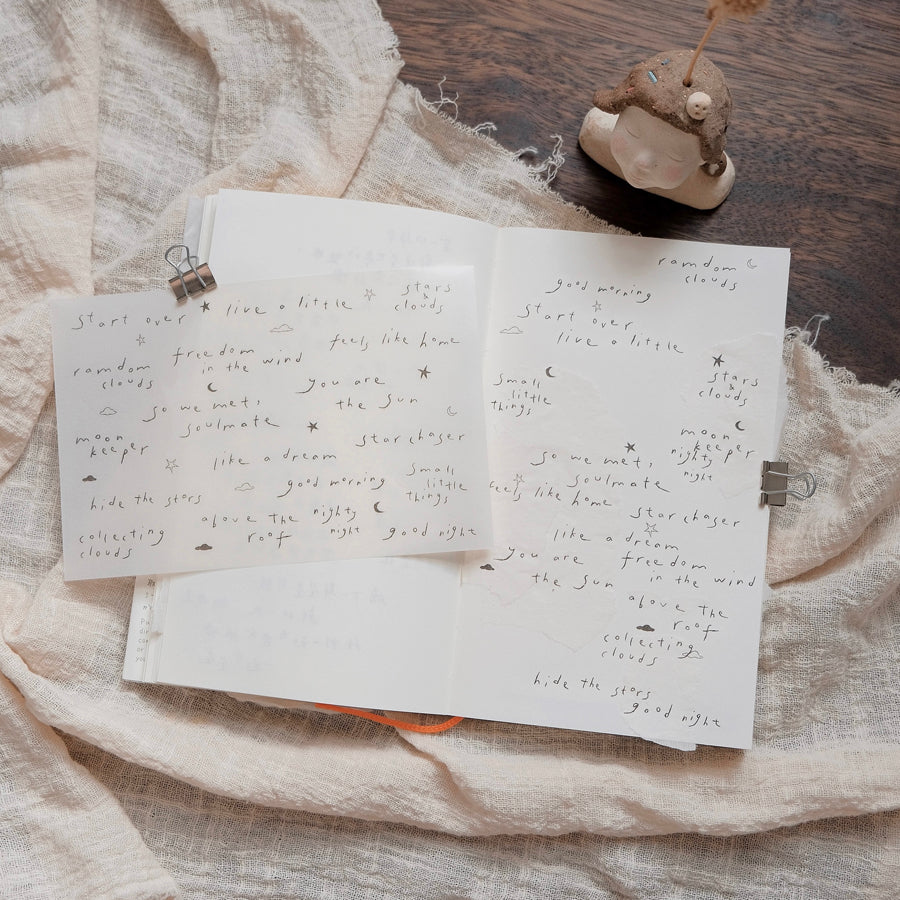 start over
live a little
stars
&
clouds
ramdom
clouds
freedom
in the wind
feels like home
you are
the sun
so we met,
soulmate
moon
keeper
like a dream
star chaser
good morning
small
little
things
hide the stars
above the
roof
nighty
night
good night
collecting
clouds
ramdom
clouds
good morning
start over,
live a little
small
little
things
stars
&
clouds
moon
keeper
nighty
night
so we met,
soulmate
feels like home
star chaser
like a dream
you are
the sun
freedom
in the wind
above the
roof
collecting
clouds
hide the stars
good night